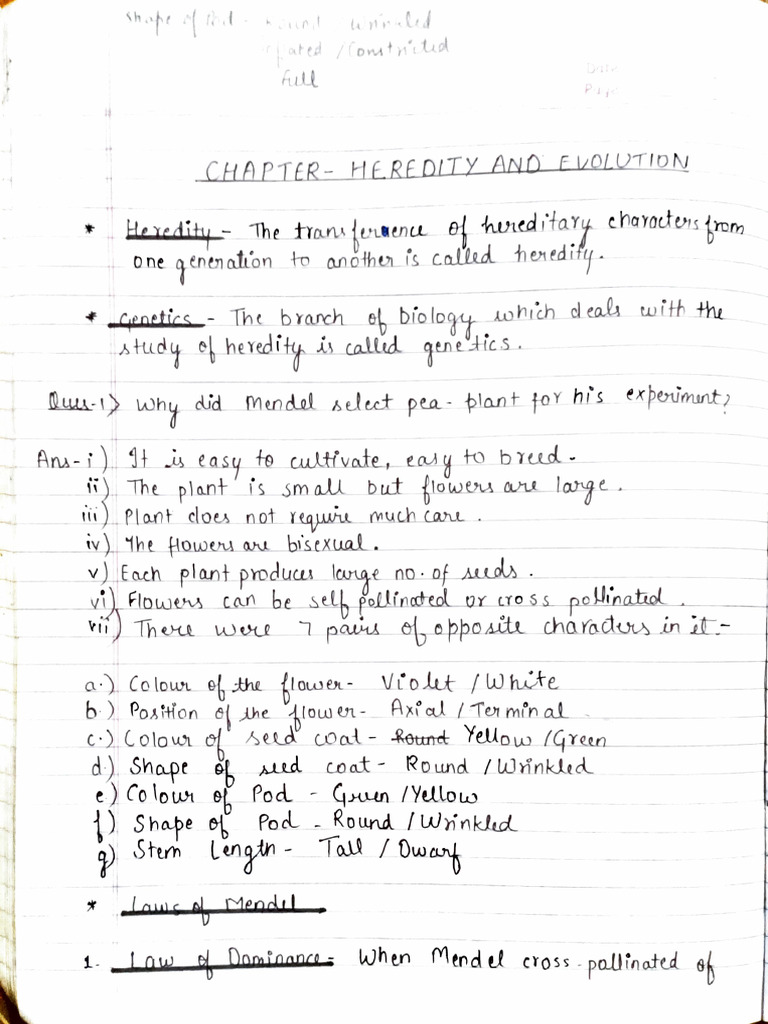 Shape of Pod - Round Wrinkled
/Constricted
Full
Date
Page
CHAPTER- HEREDITY AND EVOLUTION
* Heredity - The transference of hereditary characters from
one generation to another is called heredity.
* Genetics - The branch of biology which deals with the
study of heredity is called genetics.
Ques-1> Why did Mendel select pea-plant for his experiment?
Ans-i) It is easy to cultivate, easy to breed.
ii) The plant is small but flowers are large.
iii) Plant does not require much care.
iv) The flowers are bisexual.
v) Each plant produces large no. of seeds.
vi) Flowers can be self pollinated or cross pollinated.
vii) There were 7 pairs of opposite characters in it:-
a.) Colour of the flower- Violet /White
b.) Position of the flower- Axial / Terminal
c.) Colour of seed coat- Round Yellow /Green
d.) Shape of seed coat- Round /Wrinkled
e) Colour of Pod - Green /Yellow
f) Shape of Pod - Round /Wrinkled
g) Stem Length - Tall / Dwarf
* Laws of Mendel
1. Law of Dominance- When Mendel cross-pollinated of